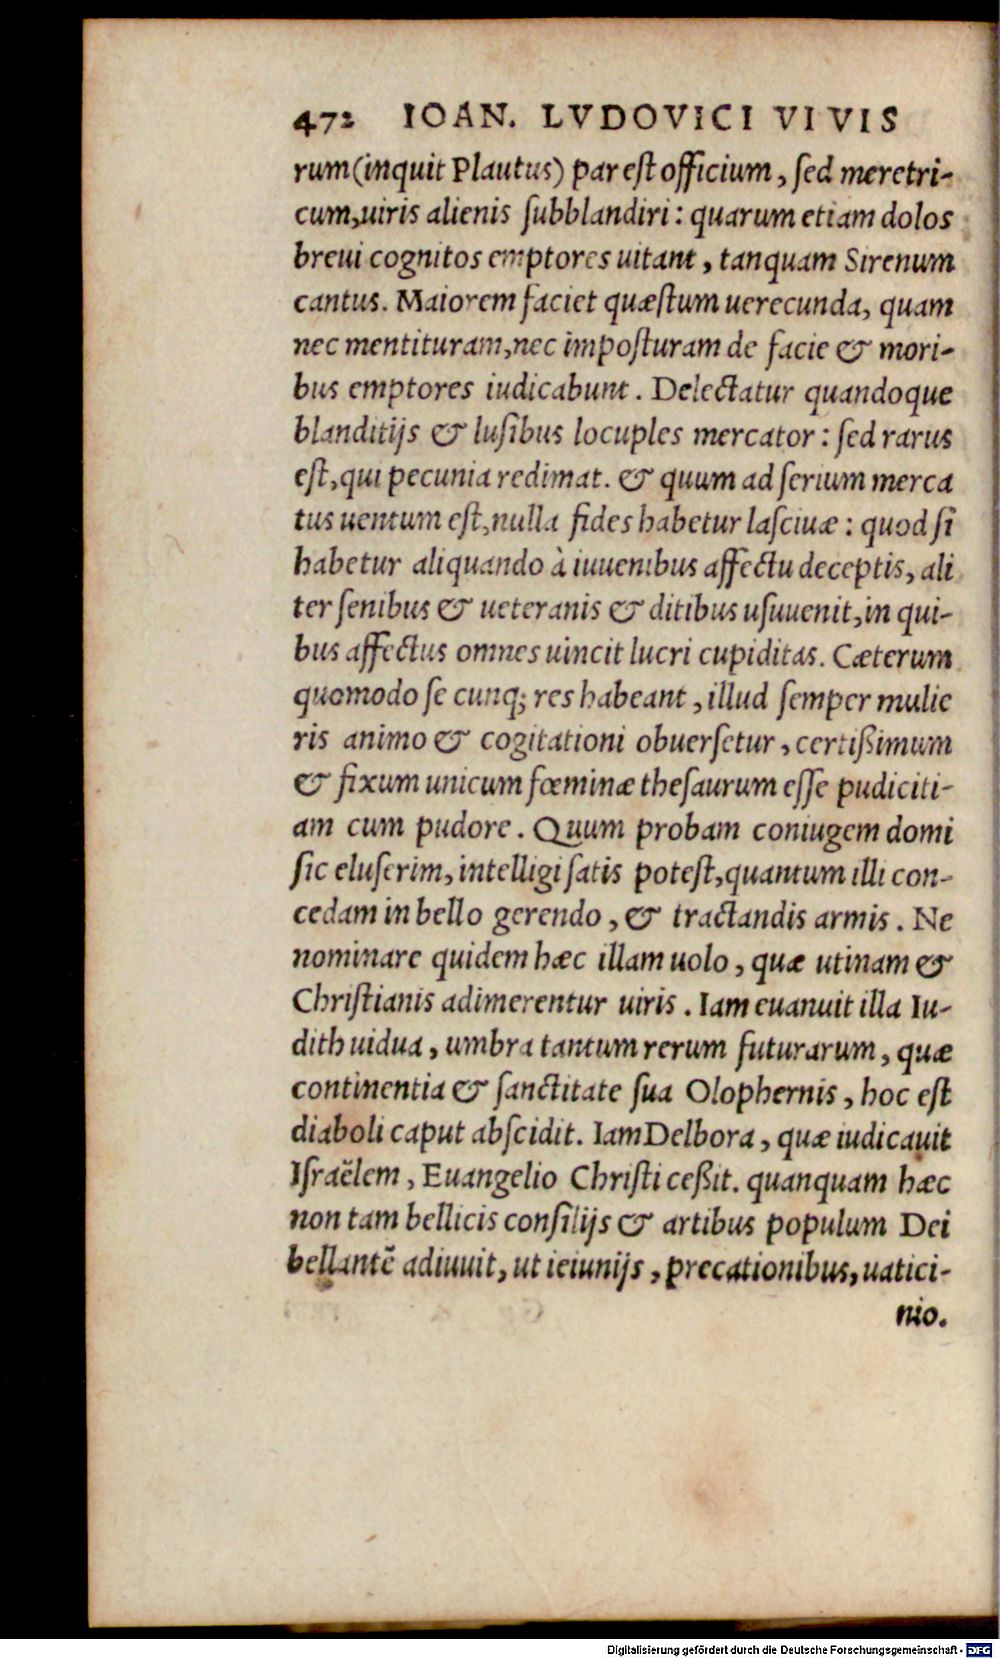 472 IOAN. LVDOVICI VIVIS
rum (inquit Plautus) par eſt officium, ſed meretri-
cum, uiris alienis ſubblandiri: quarum etiam dolos
breui cognitos emptores uitant, tanquam Sirenum
cantus. Maiorem faciet quæſtum uerecunda, quam
nec mentituram, nec impoſturam de facie & mori-
bus emptores iudicabunt. Delectatur quandoque
blanditijs & luſibus locuples mercator: ſed rarus
eſt, qui pecunia redimat. & quum ad ſerium merca
tus uentum eſt, nulla fides habetur laſciuæ: quod ſi
habetur aliquando à iuuenibus affectu deceptis, ali
ter ſenibus & ueteranis & ditibus uſuuenit, in qui-
bus affectus omnes uincit lucri cupiditas. Cæterum
quomodo ſe cunq; res habeant, illud ſemper mulie
ris animo & cogitationi obuerſetur, certißimum
& fixum unicum fœminæ theſaurum eſſe pudiciti-
am cum pudore. Quum probam coniugem domi
ſic eluſerim, intelligi ſatis poteſt, quantum illi con-
cedam in bello gerendo, & tractandis armis. Ne
nominare quidem hæc illam uolo, quæ utinam &
Chriſtianis adimerentur uiris. Iam euanuit illa Iu-
dith uidua, umbra tantum rerum futurarum, quæ
continentia & ſanctitate ſua Olophernis, hoc eſt
diaboli caput abſcidit. Iam Delbora, quæ iudicauit
Iſraëlem, Euangelio Chriſti ceßit. quanquam hæc
non tam bellicis conſilijs & artibus populum Dei
bellantē adiuuit, ut ieiunijs, precationibus, uatici-
nio.
Digitalisierung gefördert durch die Deutsche Forschungsgemeinschaft - DFG